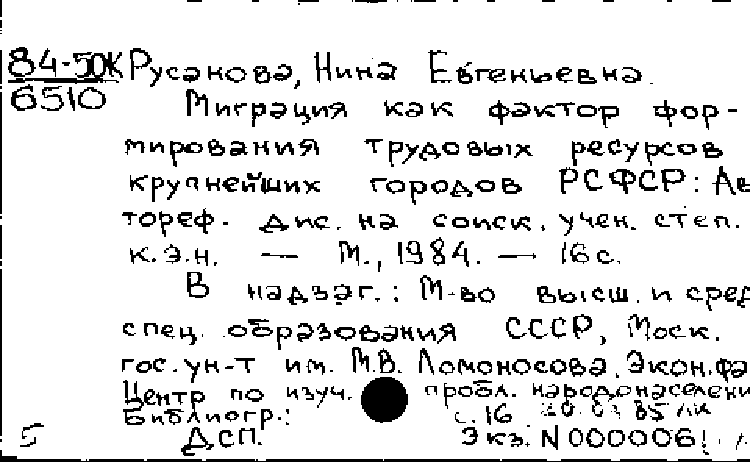 84-50К Русанова, Нина Евгеньевна.
6510 Миграция как фактор фор-
мирования трудовых ресурсов
крупнейших городов РСФСР: Ав
тореф. дис. на соиск. учен. степ.
к.э.н. — М., 1984. — 16 с.
В надзаг.: М-во высш. и сред
спец. образования СССР, Моск.
гос. ун-т им. М.В. Ломоносова. Экон. фа
Центр по изуч. пробл. народонаселени
Библиогр.: с. 16
5 ДСП. Экз. N 0000061